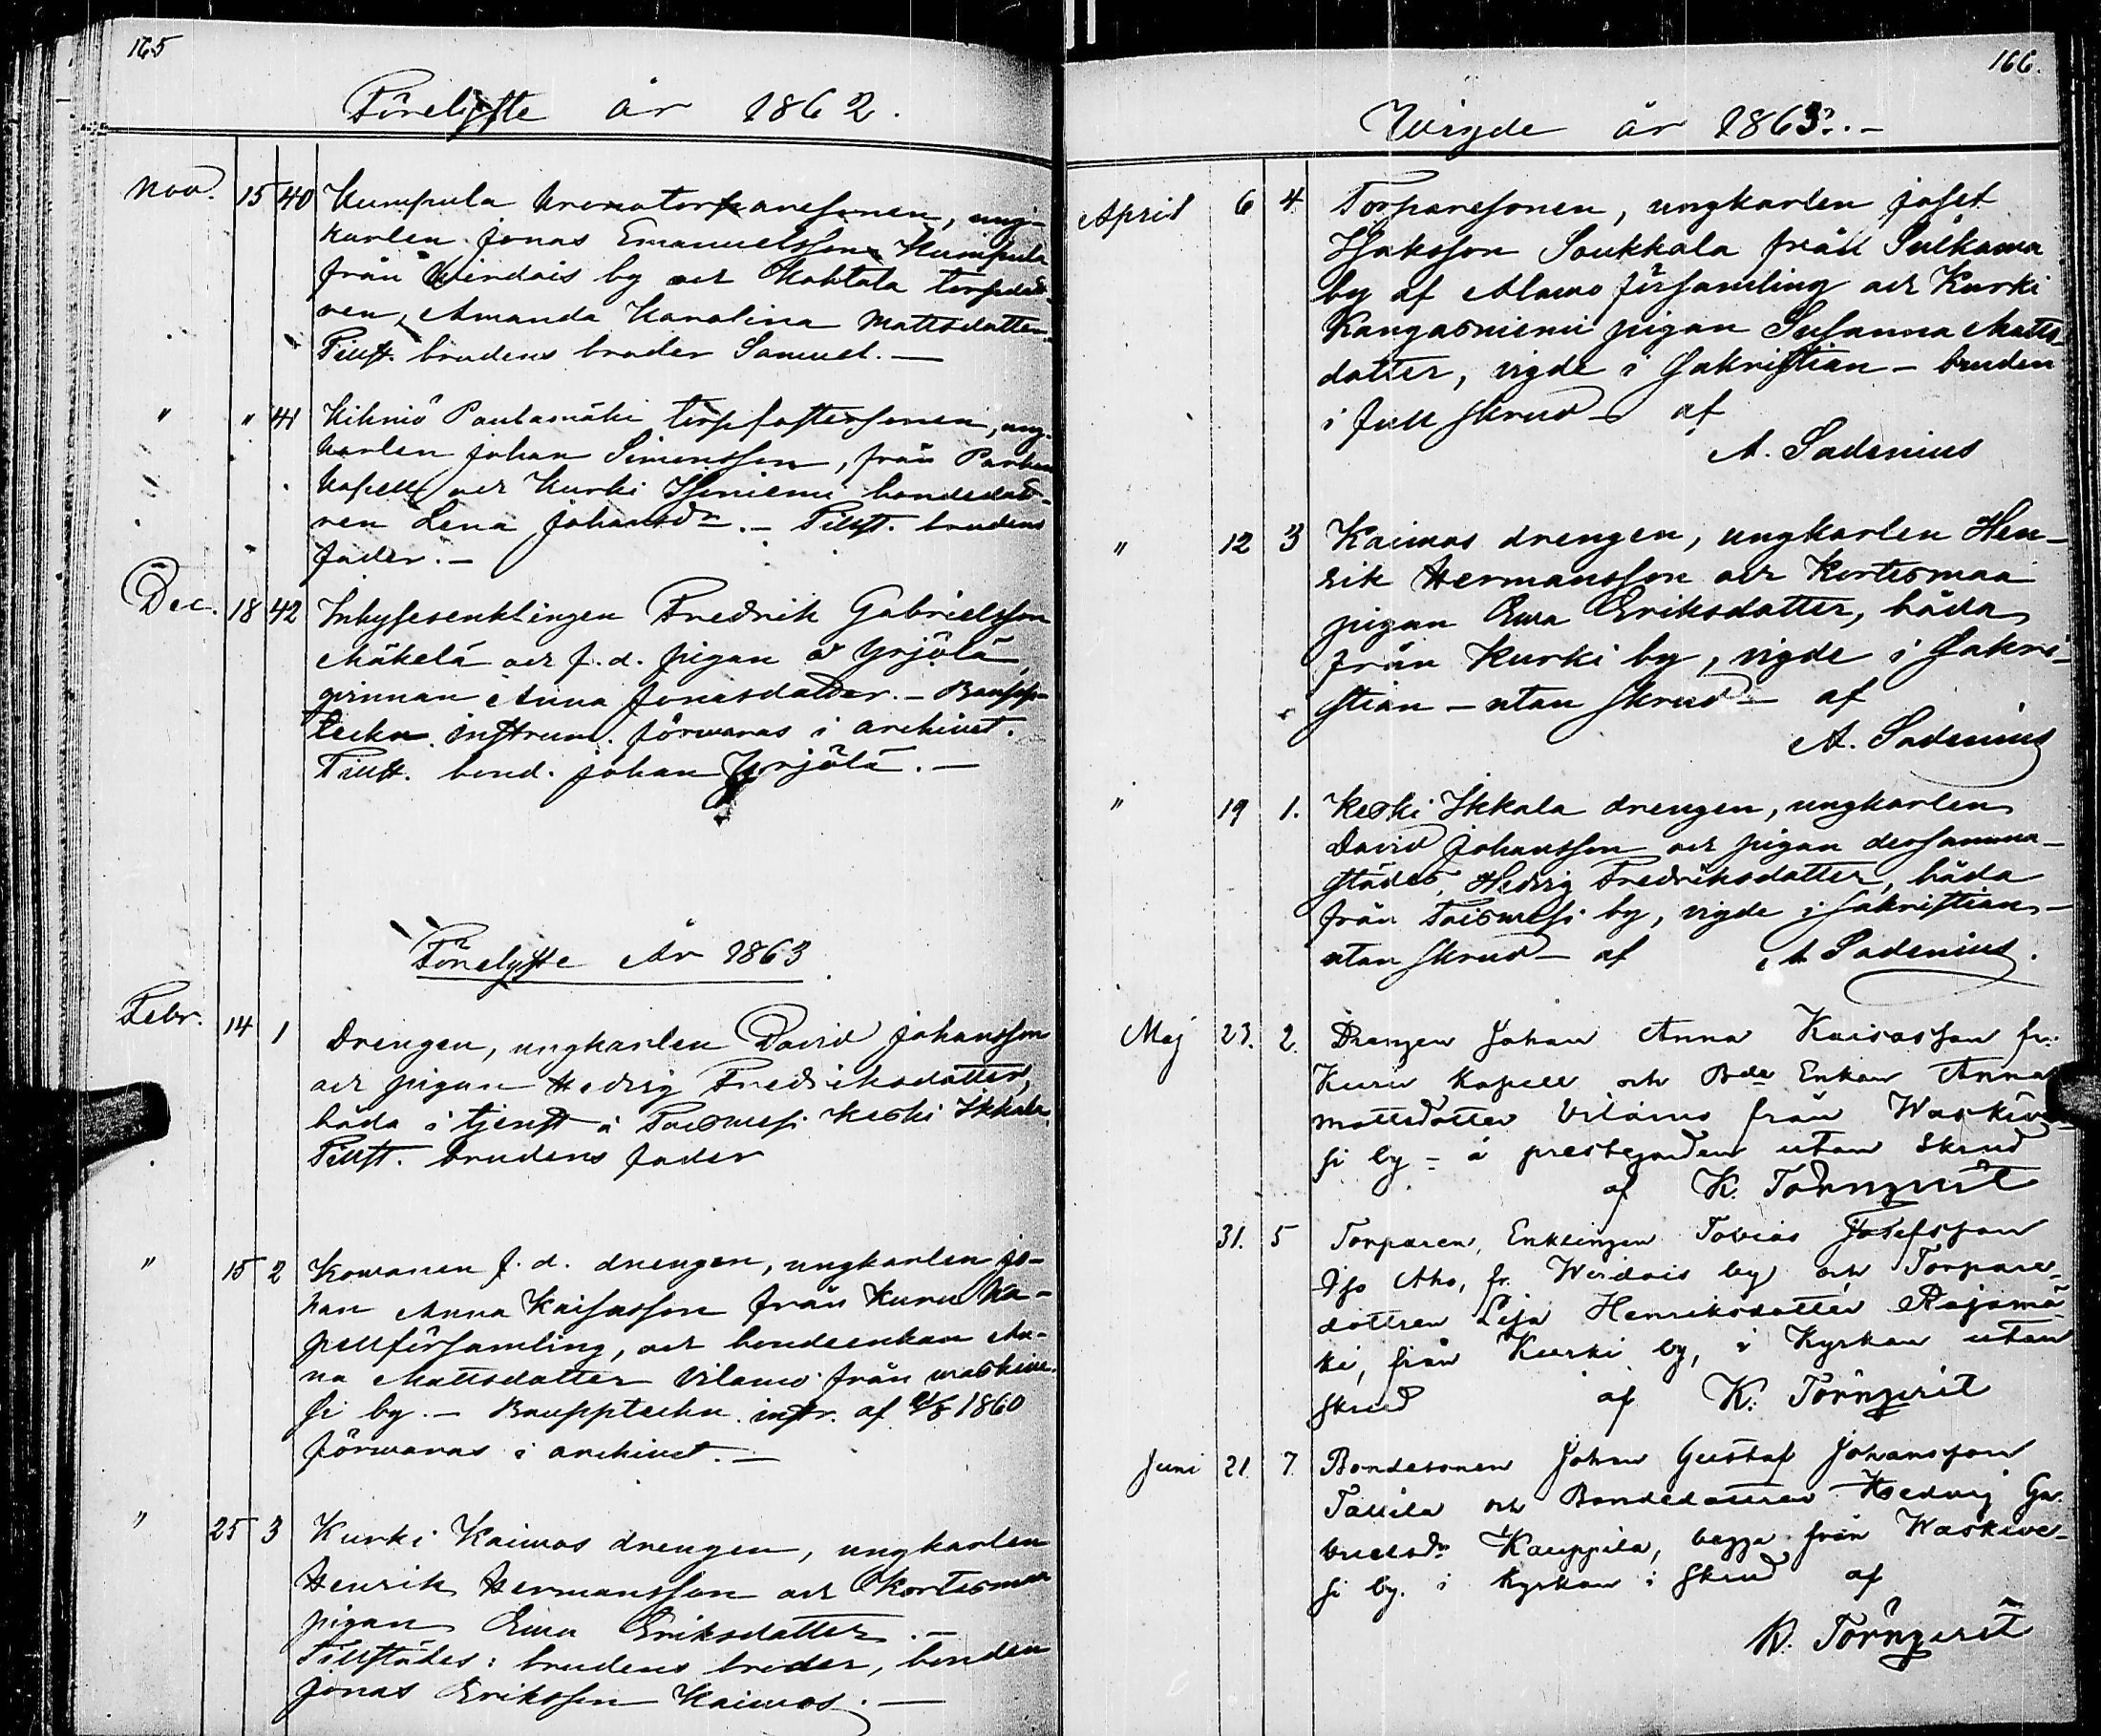 165
Förelyste år 1862.
Nov. 15 40 Kumpula Kronotorparesonen, ung-
karlen Jonas Emanuelsson Kumpula
från Wirdois by och Kohtala torpedot-
ren, Amanda Karolina Mattsdotter.
Tillst. brudens broder Samuel. —
" " 41 Kihniö Pantamäki torpfostersonen, ung-
karlen Johan Simonsson, från Parkano
kapell och Kurki Isoniemi bondedott-
ren Lena Johansdr. — Tillst. brudens
fader. —
Dec. 18 42 Inhysesenklingen Fredrik Gabrielsson
Mäkelä och f. d. pigan å Yrjölä,
qvinnan Anna Jonasdotter. — Boupp-
teckn. instrum. förwaras i archivet.
Tillst. bond. Johan Yrjölä. —
Förelyste År 1863.
Febr. 14 1 Drengen, ungkarlen David Johansson
och pigan Hedvig Fredriksdotter,
båda i tjenst å Toiswesi Keski Ikkala.
Tillst. brudens fader
" 15 2 Kowanen f. d. drengen, ungkarlen Jo-
han Anna Kaisasson från Kuru Ka-
pellförsamling, och bondeenkan An-
na Mattsdotter Wilamo från Waskiwe-
si by. — Bouppteckn. instr. af 1860
förwaras i archivet. —
" 25 3 Kurki Kaiwos drengen, ungkarlen
Henrik Hermansson och Kortesmaa
pigan Ewa Eriksdotter. —
Tillstädes: brudens broder, bonden
Jonas Eriksson Kaiwos. —
166.
Wigde år 1863. —
April 6 4. Torparesonen, ungkarlen Josef
Isaksson Soukkala från Sulkawa
by af Alawo församling och Kurki
Kangasniemi pigan Susanna Matts-
dotter, vigde i Sakristian — bruden
i full skrud — af
A. Sadenius
" 12 3 Kaiwos drengen, ungkarlen Hen-
rik Hermansson och Kortesmaa
pigan Ewa Eriksdotter, båda
från Kurki by, vigde i Sakri-
stian — utan skrud — af
A. Sadenius
" 19 1. Keski Ikkala drengen, ungkarlen
David Johansson och pigan dersamma-
städes, Hedvig Fredriksdotter, båda
från Toiswesi by, vigde i Sakristian —
utan skrud — af A. Sadenius.
Maj 23. 2. Drengen Johan Anna Kaisasson fr.
Kuru Kapell och Bde Enkan Anna
Mattsdotter Wilamo från Waskiwe-
si by — å prestgården utan skrud
af K. Törnqvist
31. 5 Torparen, Enklingen Tobias Josefsson
Iso Aho, fr. Wirdois by och Torpare-
dottren Lisa Henriksdotter Rajamä-
ki, från Kurki by, i Kyrkan utan
skrud af K. Törnqvist
Juni 21. 7. Bondesonen Johan Gustaf Johansson
Tallila och Bondedottren Hedvig Ga-
brielsdr Kauppila, begge från Waskiwe-
si by. i Kyrkan i skrud af
K. Törnqvist